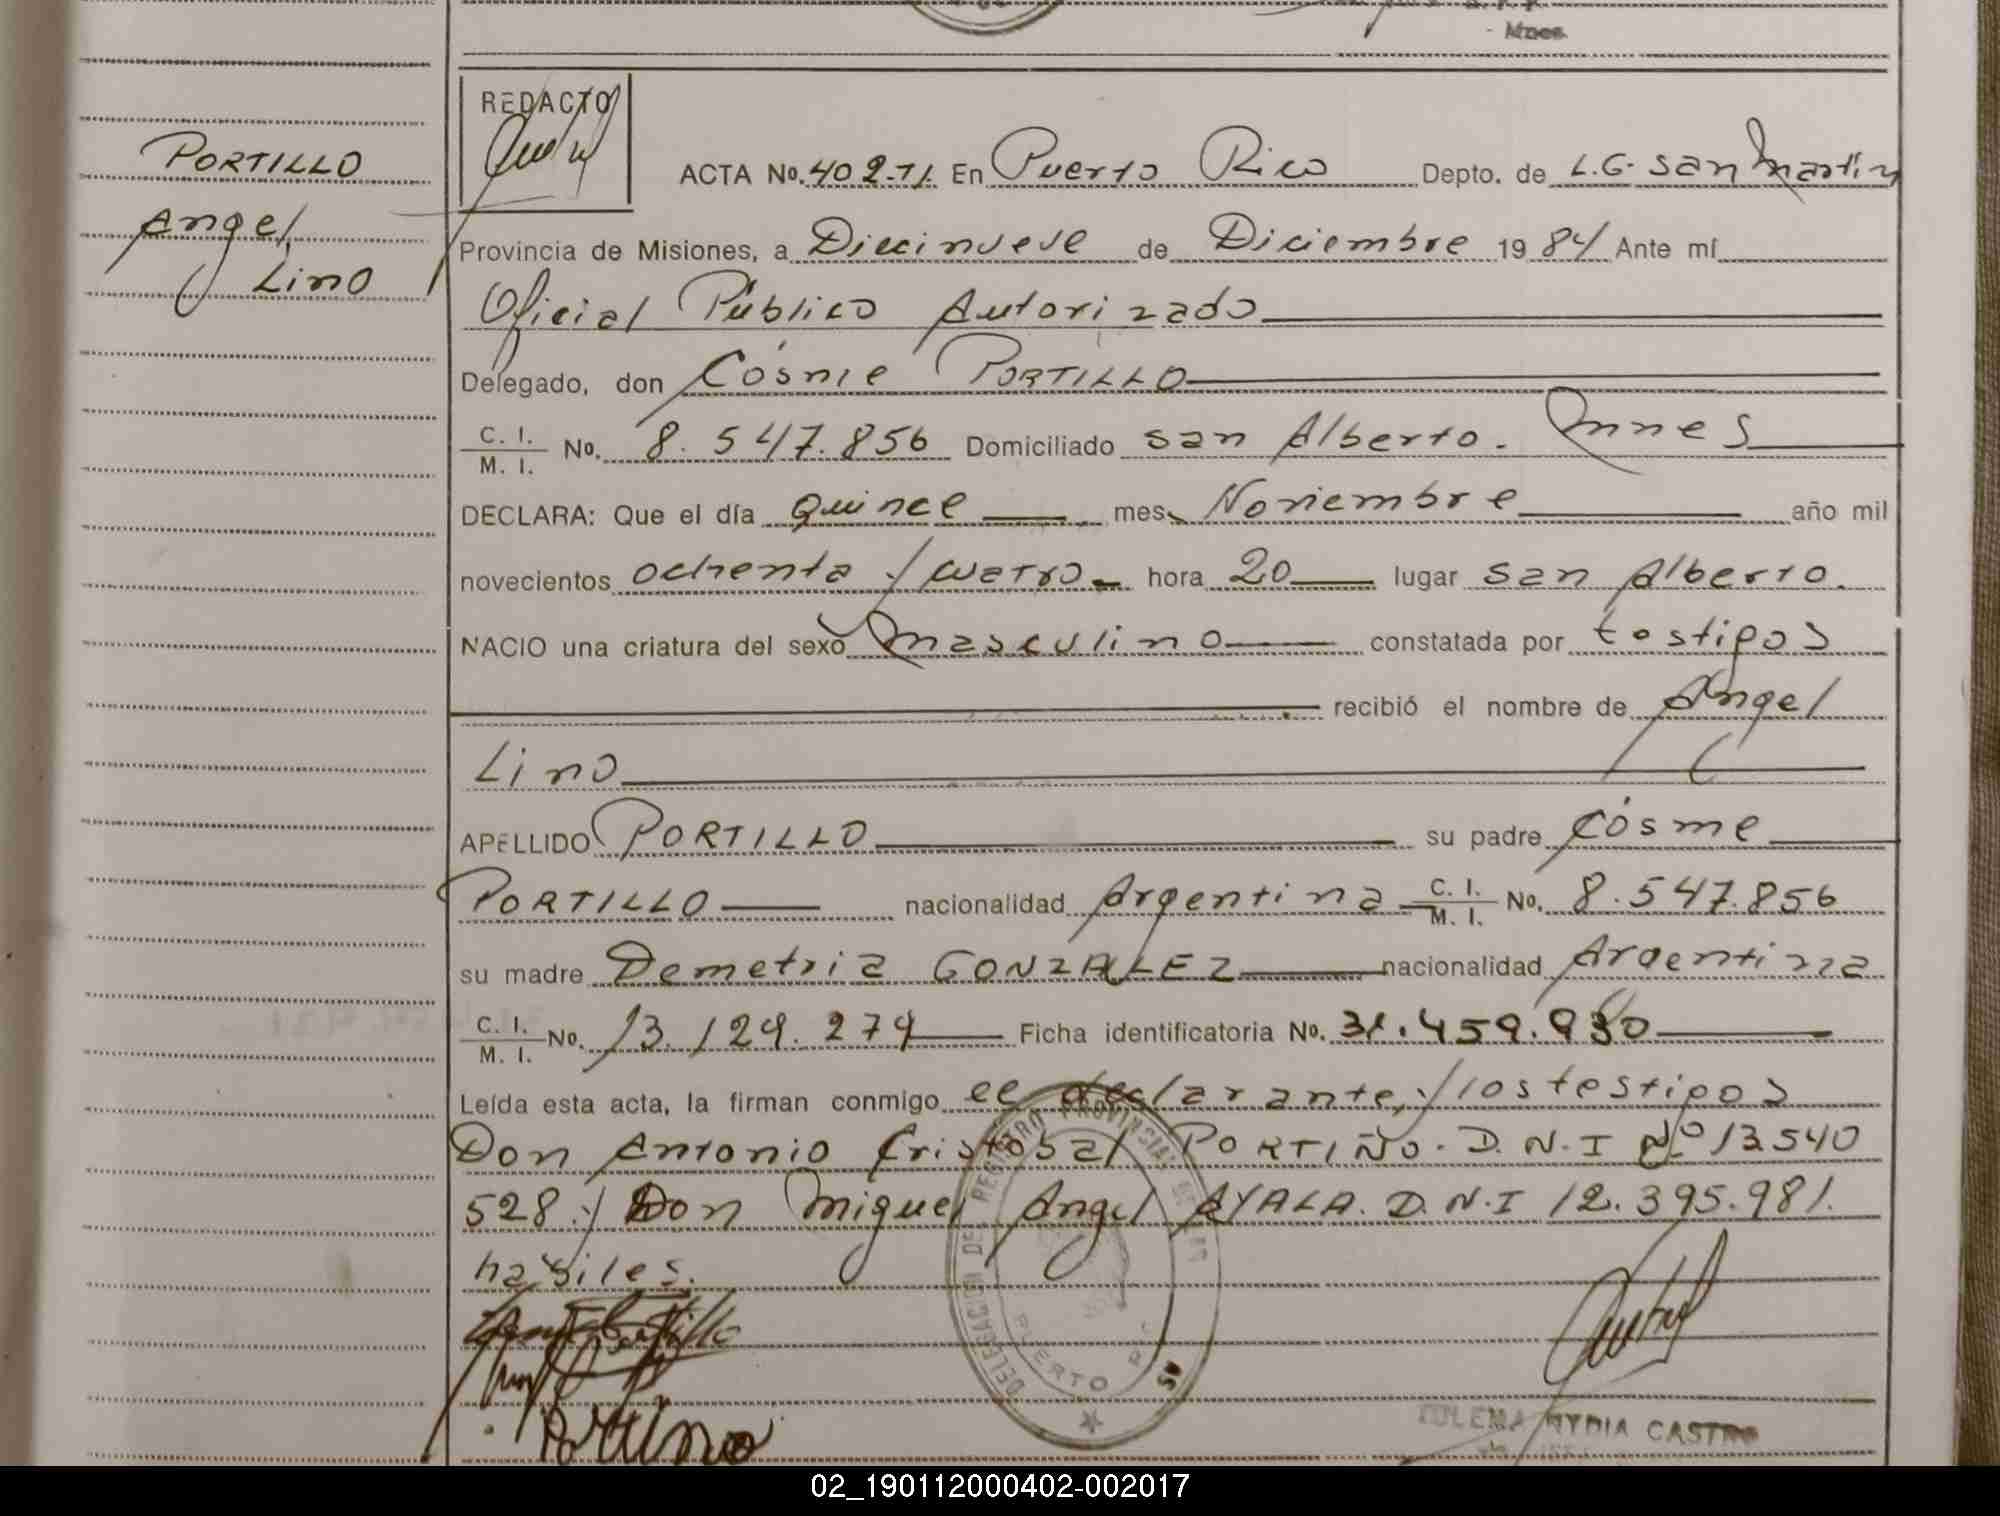 Mnes.
REDACTO
PORTILLO
Angel
Lino
ACTA No. 402-TI. En Puerto Rico Depto. de L.G. San Martín
Provincia de Misiones, a Diecinueve de Diciembre 1984 Ante mí
Oficial Público Autorizado
Delegado, don Cósme PORTILLO
C. I. / M. I. No. 8.547.856 Domiciliado San Alberto. Mnes
DECLARA: Que el día quince mes Noviembre año mil
novecientos ochenta y cuatro. hora 20 lugar San Alberto.
NACIO una criatura del sexo Masculino constatada por testigos
recibió el nombre de Angel
Lino
APELLIDO PORTILLO su padre Cósme
PORTILLO nacionalidad Argentina C. I. / M. I. No. 8.547.856
su madre Demetria GONZALEZ nacionalidad Argentina
C. I. / M. I. No. 13.129.279 Ficha identificatoria No. 31.459.930
Leída esta acta, la firman conmigo el declarante, y los testigos
Don Antonio Cristobal PORTIÑO. D.N.I Nº 13540
528. y Don Miguel Angel AYALA. D.N.I 12.395.981.
habiles.
DELEGACION DEL REGISTRO PROVINCIAL DE LAS
PUERTO
Portiño
MYDIA CASTRO
02_190112000402-002017